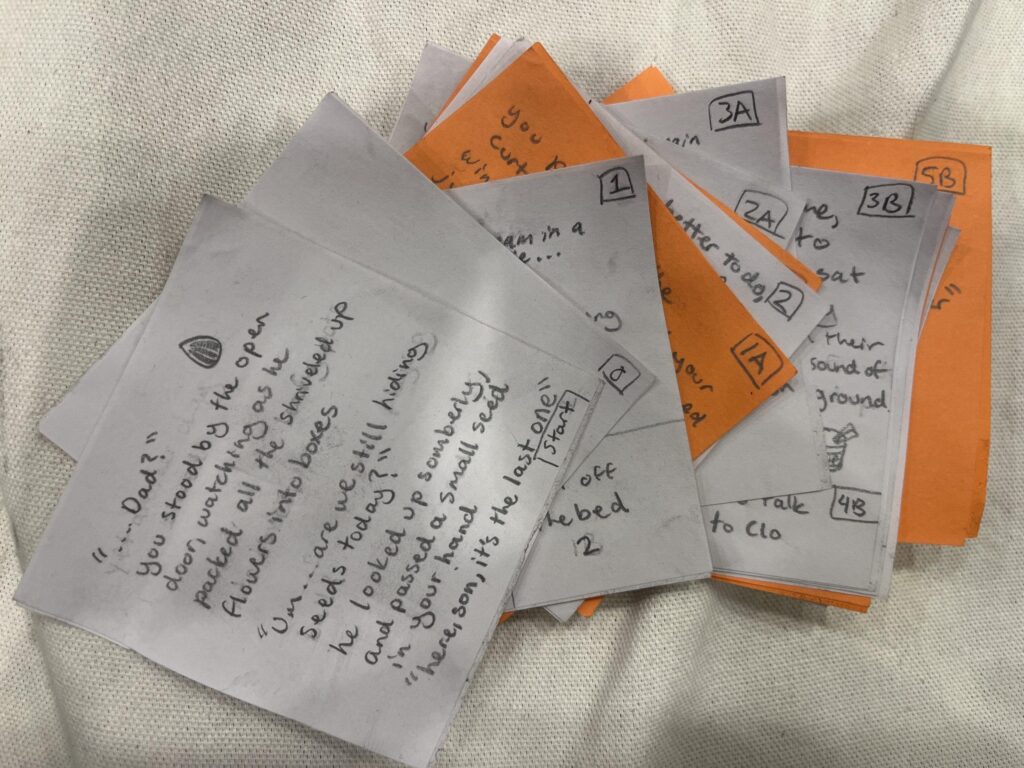 ".....Dad?"
you stood by the open
door, watching as he
packed all the shriveled up
flowers into boxes
"Um.... are we still hiding
seeds today?"
he looked up somberly,
and passed a small seed
in your hand
"here, son, it's the last one"
start
0
1
in a
off
bed
2
you
your
1A
better today,
2
2A
3A
3B
to
sat
their
sound of
ground
Talk
to Clo
4B
5B